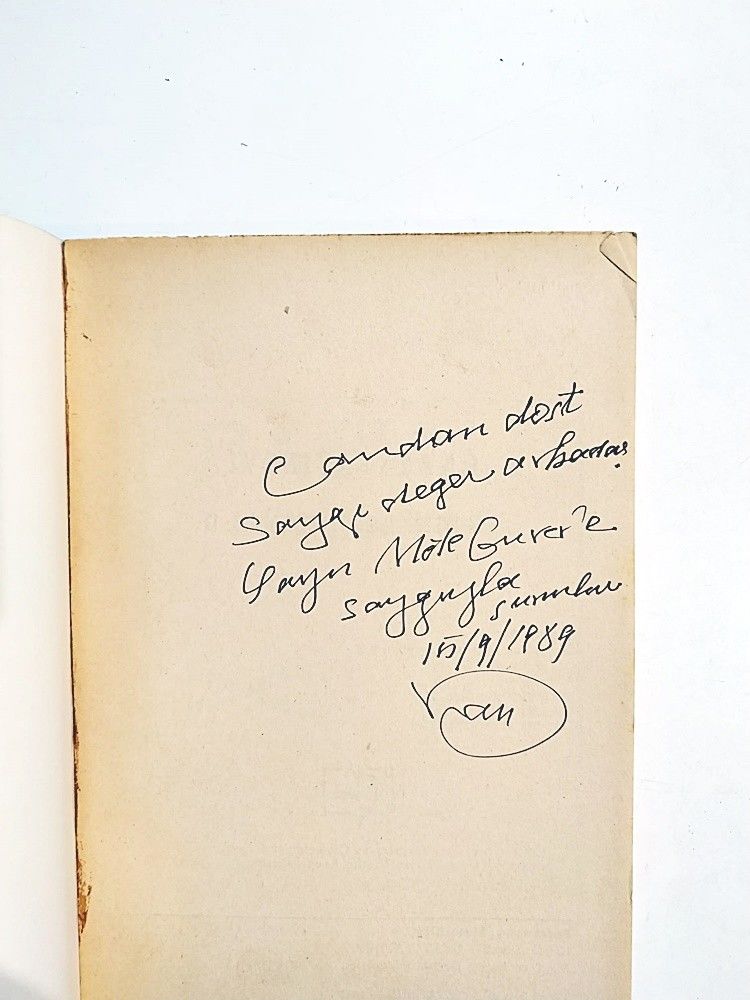 Candan dost
Saygı değer arkadaş
Sayın Güver'e
saygıyla
sunulur
15/9/1989